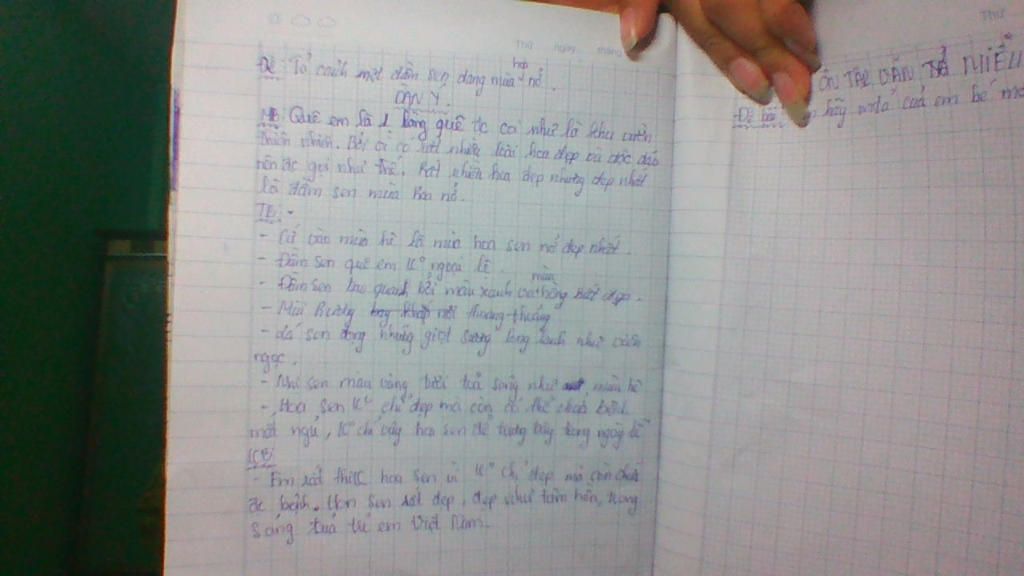 Thứ ngày tháng
Đề: Tả cảnh một đầm sen đang mùa hoa nở.
DÀN Ý.
MB: Quê em là 1 làng quê tc coi như là khu vườn
thiên nhiên. Bởi ở có rất nhiều loài hoa đẹp và độc đáo
nên đc gọi như thế. Rất nhiều hoa đẹp nhưng đẹp nhất
là đầm sen mùa hoa nở.
TB: -
- Cứ vào mùa hè là mùa hoa sen nở đẹp nhất.
- Đầm sen quê em K°
- Đầm sen bao quanh bởi màu xanh và màu hồng rất đẹp.
- Mùi hương thoang thoảng
- Lá sen đọng những giọt sương long lanh như viên
ngọc.
- Nhị sen màu vàng tươi toả sáng như mùa hè
- Hoa sen K° chỉ đẹp mà còn có thể chữa bệnh
mất ngủ, K° chỉ vậy hoa sen để trưng bày trong ngày lễ
KB:
- Em rất thích hoa sen vì K° chỉ đẹp mà còn chữa
đc bệnh. Hoa sen rất đẹp, đẹp như tâm hồn, trong
sáng của trẻ em Việt Nam.
Thứ
ÔN TẬP VĂN TẢ NIÊU
- Đề bài: hãy của em bé